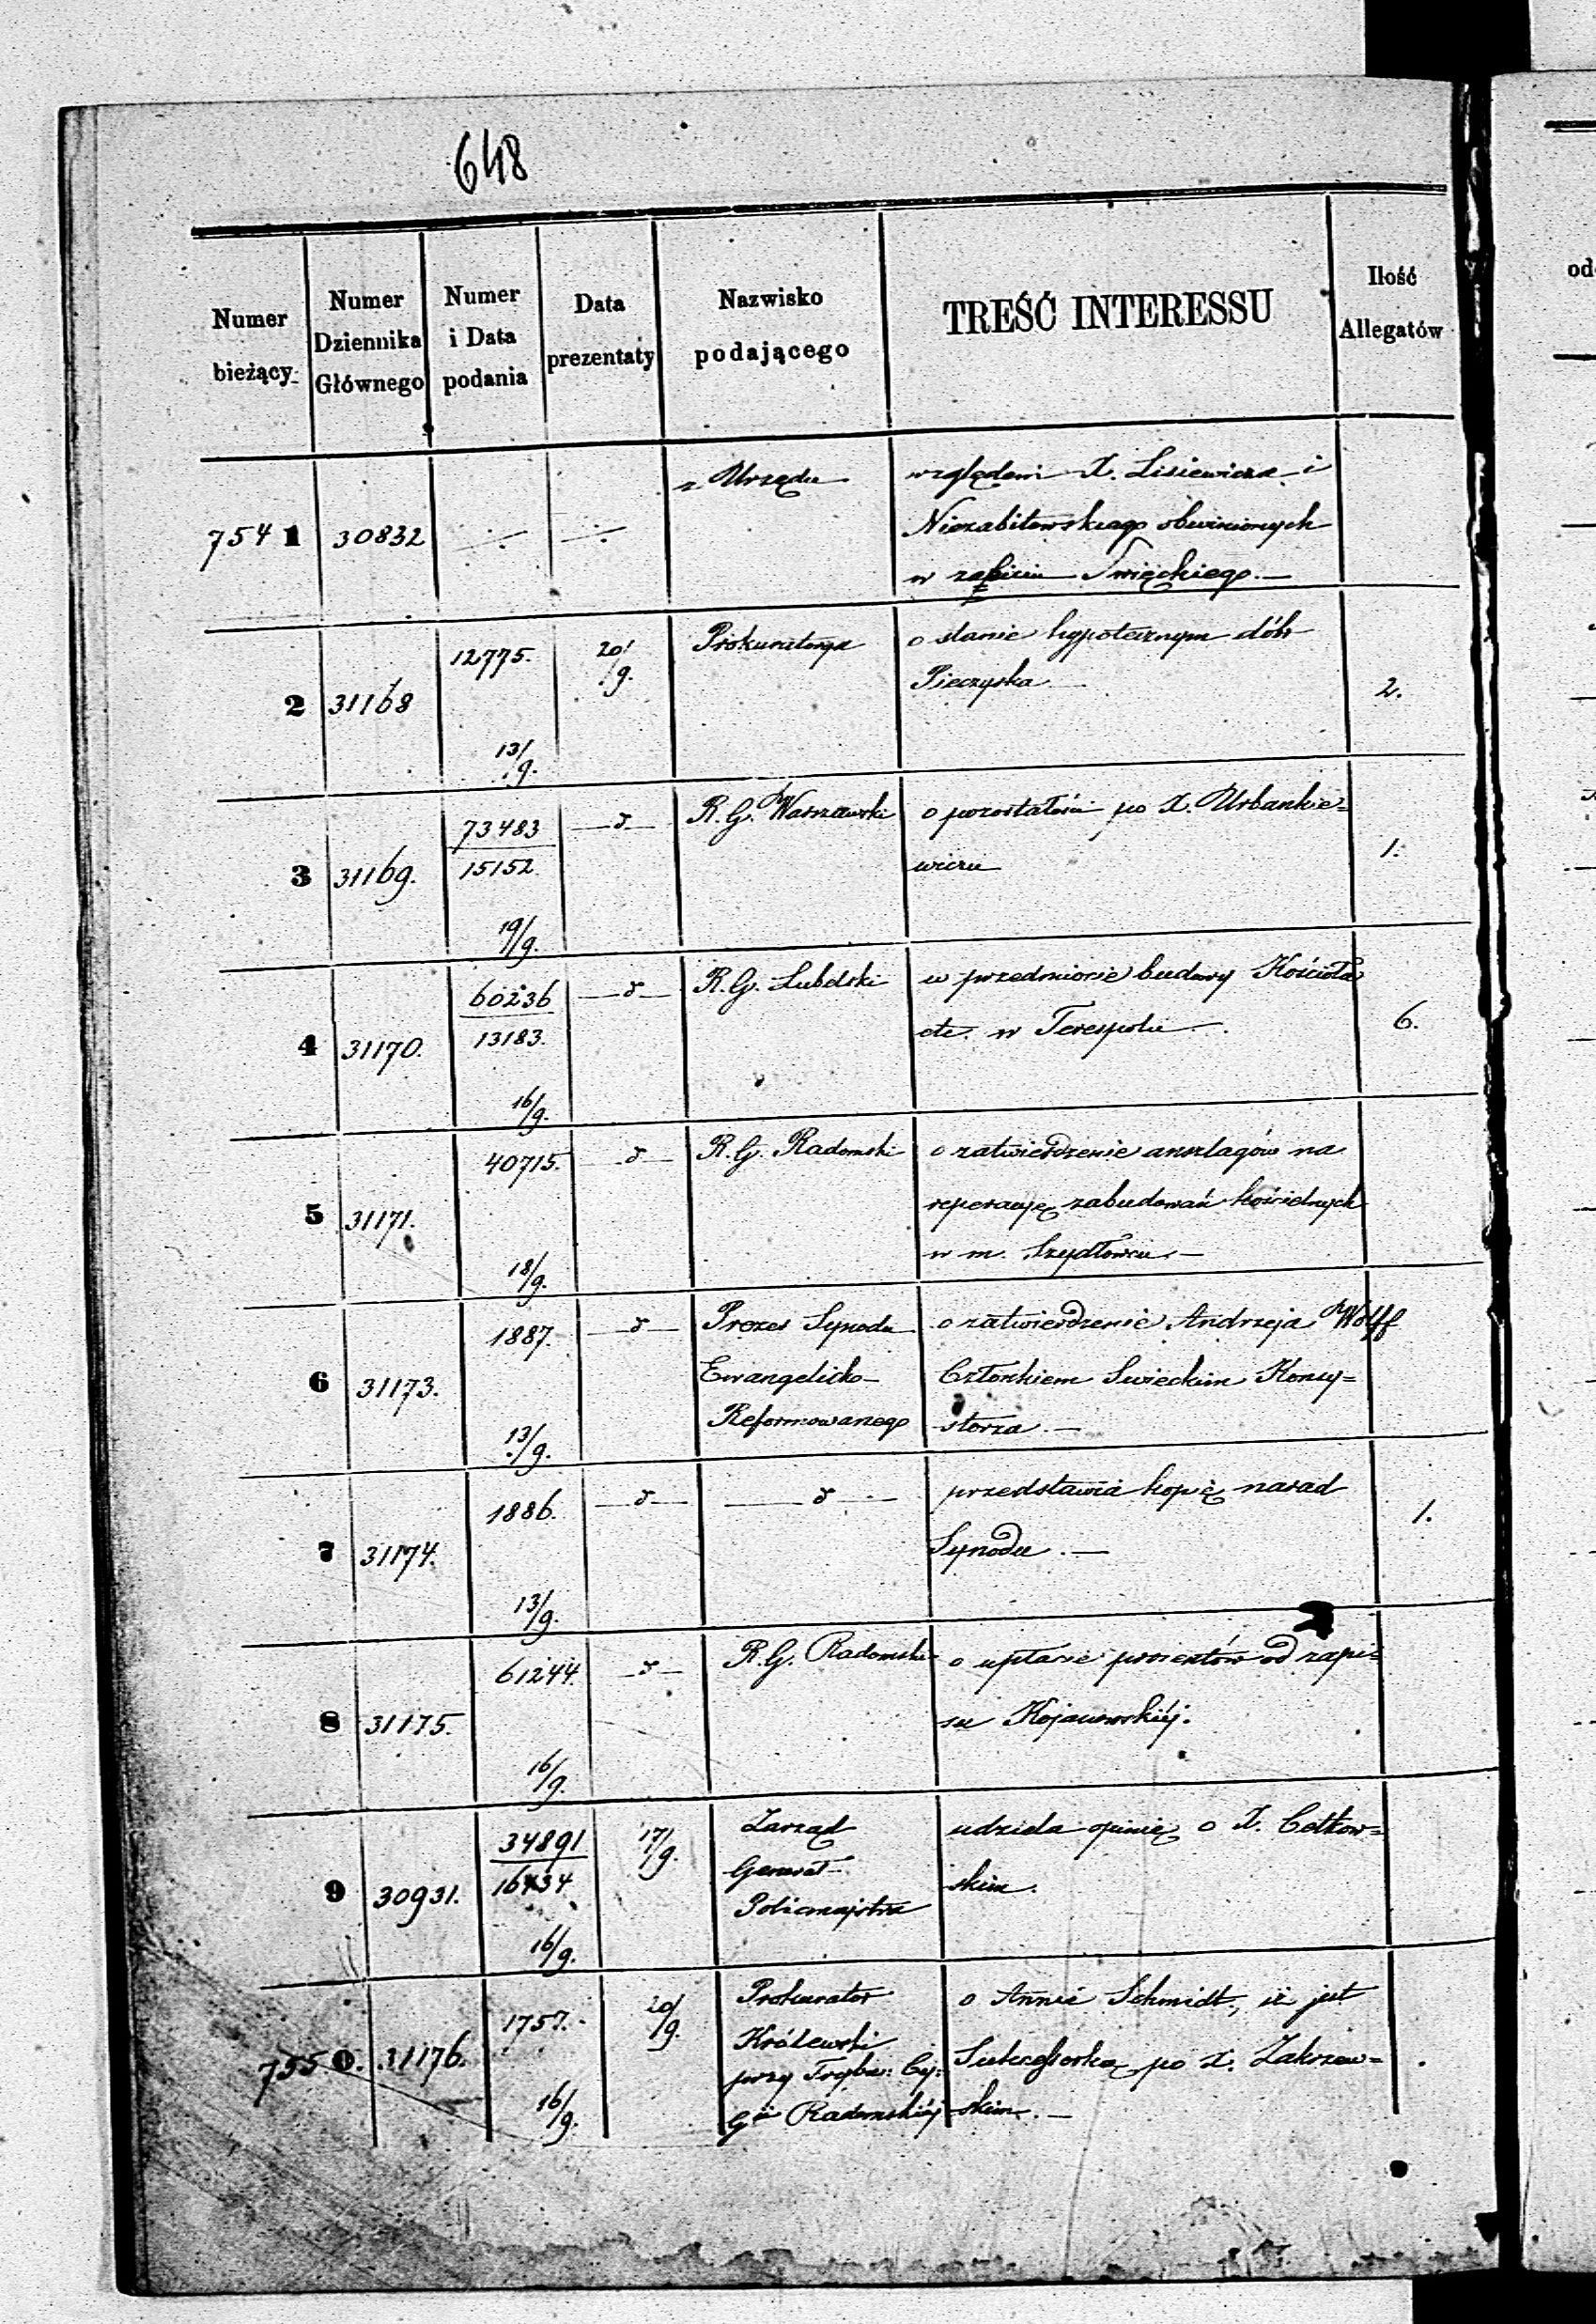 648
Numer bieżący.
Numer Dziennika Głównego
Numer i Data podania
Data prezentaty
Nazwisko podającego
TREŚĆ INTERESSU
Ilość Allegatów
7541 30832 z Urzędu względem X. Lisiewicza i
Niezabitowskiego obwinionych
w zabiciu Święckiego.—
2 31168 12775. 13/9. 20/9. Prokuratorya o stanie hypotecznym dóbr
Pieczyska 2.
3 31169. 73483
15152 19/9. —d— R. G. Warszawski o pozostałości po X. Urbankie=
wiczu 1.
4 31170. 60236
13183. 16/9. —d— R. G. Lubelski w przedmiocie budowy Kościoła
etc. w Terespolu —. 6.
5 31171. 40715. 18/9. —d— R. G. Radomski o zatwierdzenie anszlagów na
reperacyę zabudowań kościelnych
w m. Szydłowcu.—
6 31173. 1887. 13/9. —d— Prezes Synodu
Ewangelicko-
Reformowanego
o zatwierdzenie Andrzeja Wolff
Członkiem Swieckim Konsy=
storza.—
7 31174. 1886. 13/9. —d— —d— przedstawia kopię narad
Synodu.— 1.
8 31175. 61244. 16/9. —d— R. G. Radomski o upłacie procentów od zapi=
su Kojanowskiéj.
9 30931. 34891
16434 16/9. 17/9. Zarząd
Generał-
Policmajstra
udziela opinię o X. Cetkow=
skim.
7550. 31176. 1757. 16/9. 20/9. Prokurator
Królewski
przy Trybu: Cy:
Gii Radomskiéj
o Annie Schmidt, iż jest
Sukcessorką po X. Zakrzew=
skim.—